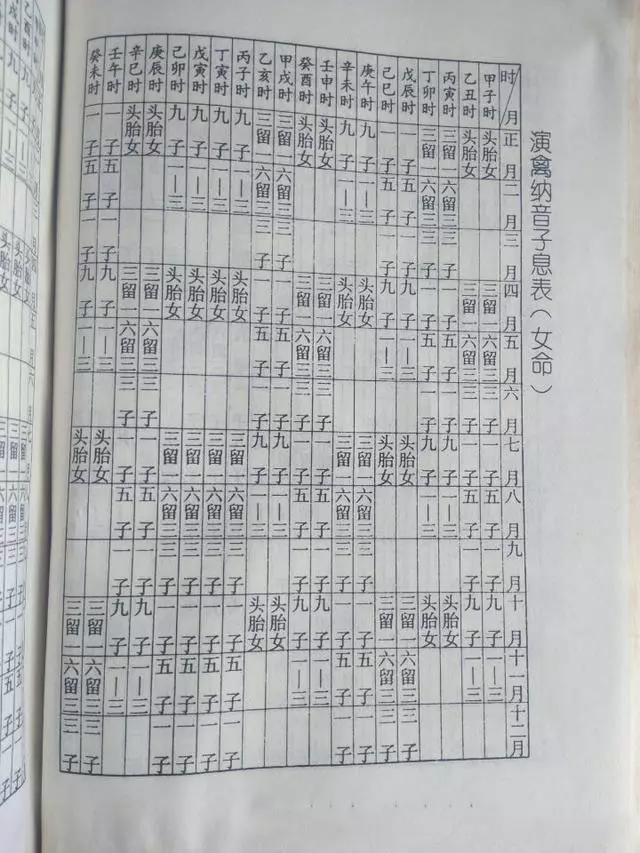 演禽纳音子息表（女命）
时/月 正月 二月 三月 四月 五月 六月 七月 八月 九月 十月 十一月 十二月
甲子时 头胎女 三留一 六留三 三子 一子 五子 一子 九子 一—三
乙丑时 头胎女 三留一 六留三 三子 一子 五子 一子 九子 一—三
丙寅时 三留一 六留三 三子 一子 五子 一子 九子 一—三 头胎女
丁卯时 三留一 六留三 三子 一子 五子 一子 九子 一—三 头胎女
戊辰时 一子 五子 一子 九子 一—三 头胎女 三留一 六留三 三子
己巳时 一子 五子 一子 九子 一—三 头胎女 三留一 六留三 三子
庚午时 九子 一—三 头胎女 三留一 六留三 三子 一子 五子 一子
辛未时 九子 一—三 头胎女 三留一 六留三 三子 一子 五子 一子
壬申时 头胎女 三留一 六留三 三子 一子 五子 一子 九子 一—三
癸酉时 头胎女 三留一 六留三 三子 一子 五子 一子 九子 一—三
甲戌时 三留一 六留三 三子 一子 五子 一子 九子 一—三 头胎女
乙亥时 三留一 六留三 三子 一子 五子 一子 九子 一—三 头胎女
丙子时 九子 一—三 头胎女 三留一 六留三 三子 一子 五子 一子
丁寅时 九子 一—三 头胎女 三留一 六留三 三子 一子 五子 一子
戊寅时 九子 一—三 头胎女 三留一 六留三 三子 一子 五子 一子
己卯时 九子 一—三 头胎女 三留一 六留三 三子 一子 五子 一子
庚辰时 头胎女 三留一 六留三 三子 一子 五子 一子 九子 一—三
辛巳时 头胎女 三留一 六留三 三子 一子 五子 一子 九子 一—三
壬午时 一子 五子 一子 九子 一—三 头胎女 三留一 六留三 三子
癸未时 一子 五子 一子 九子 一—三 头胎女 三留一 六留三 三子